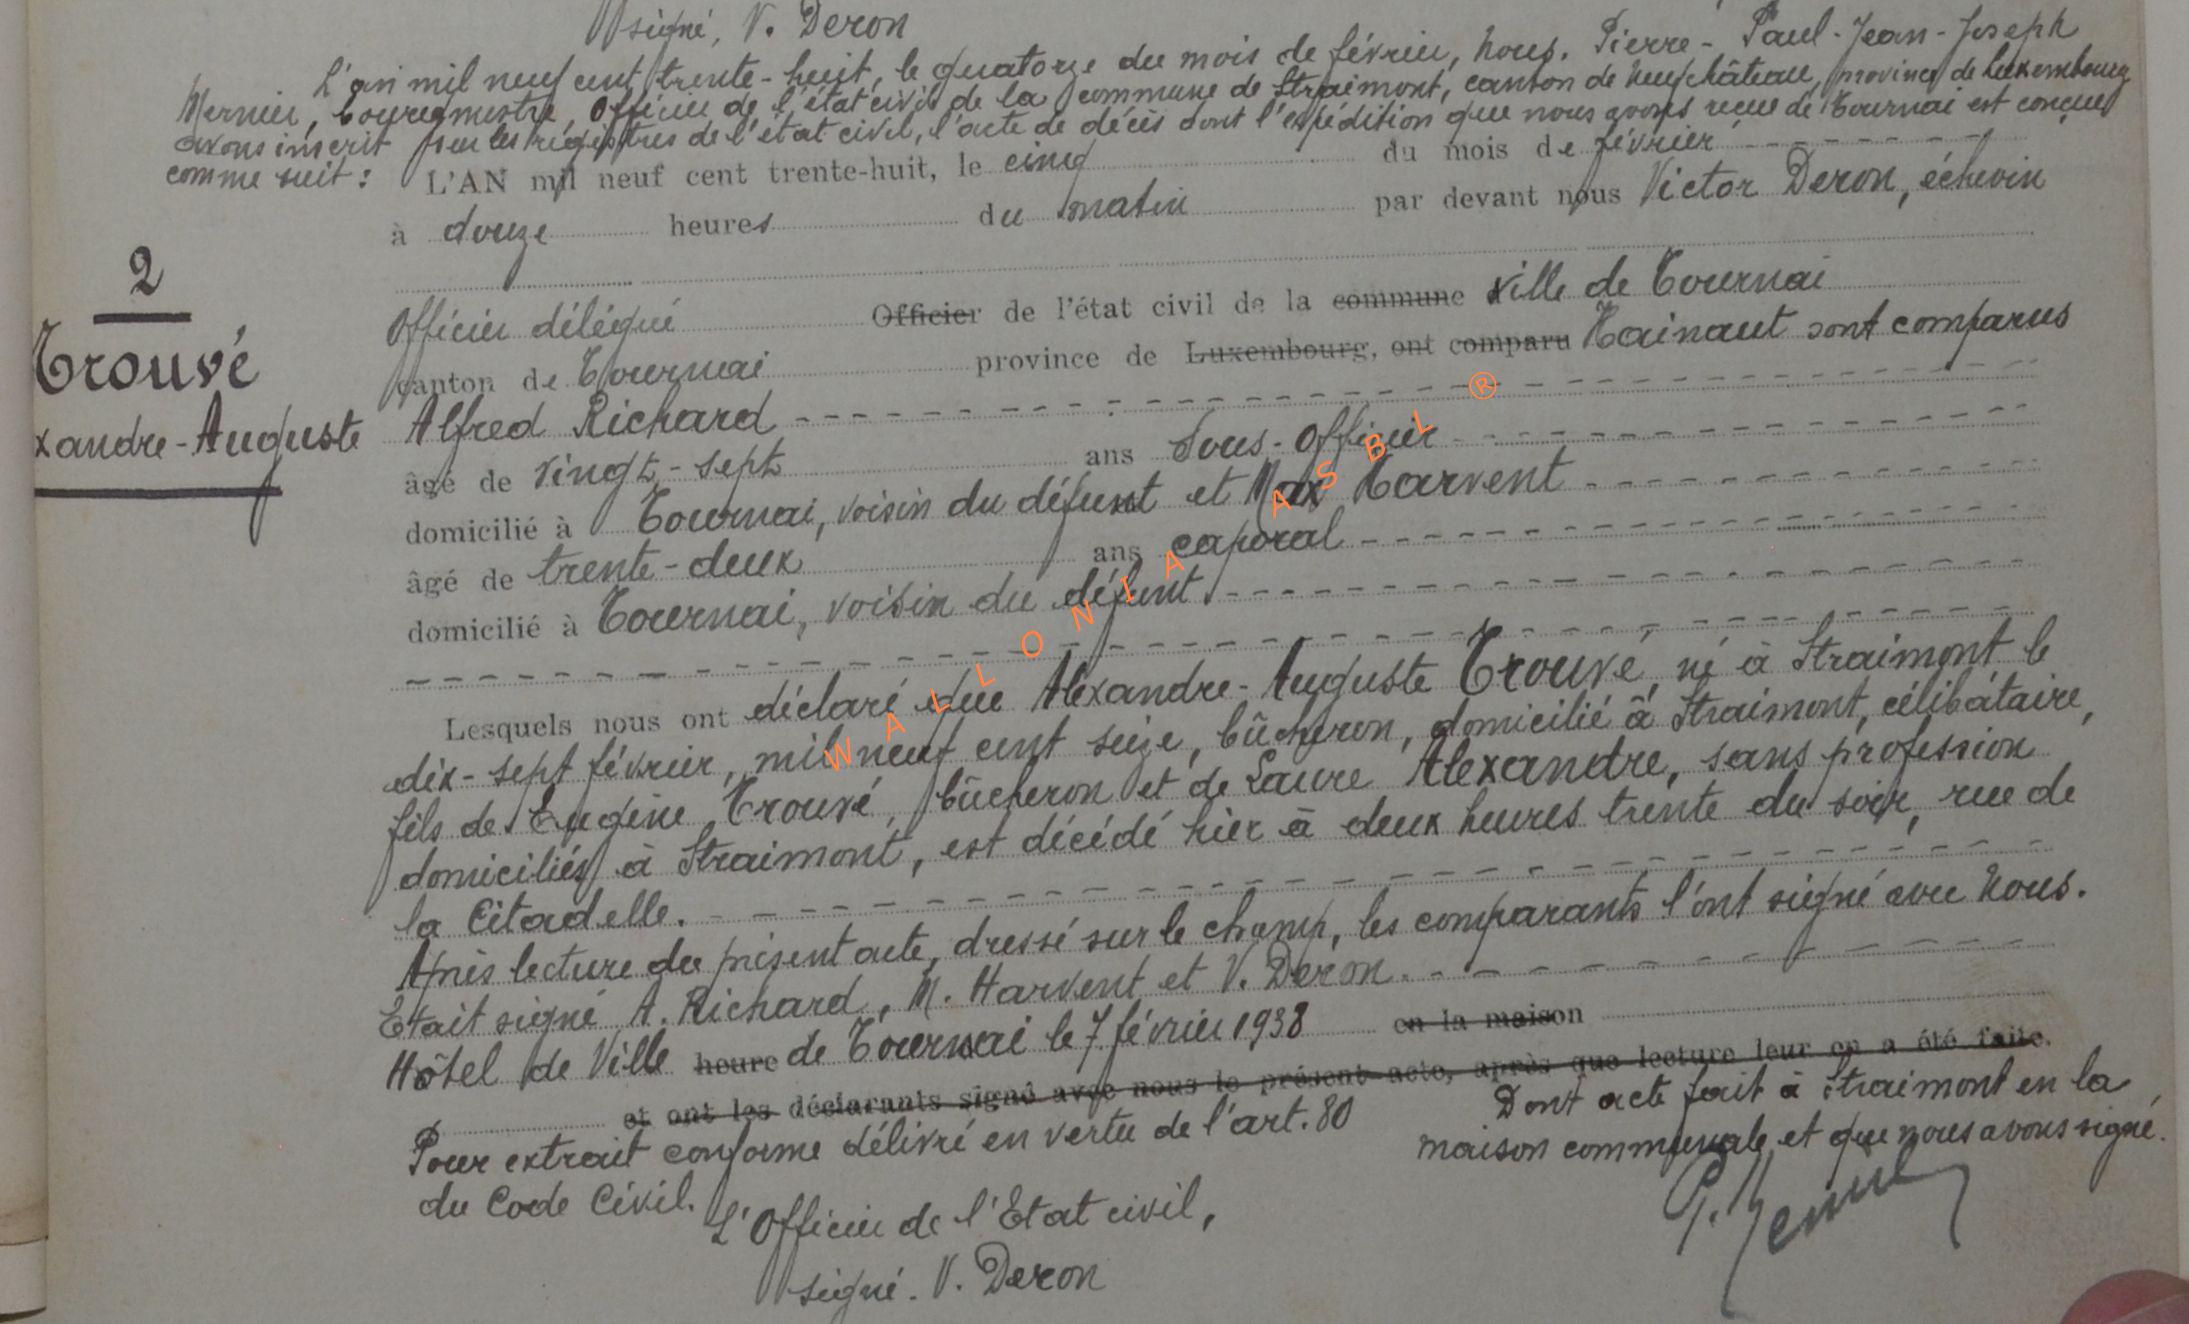 signé, V. Deron
L'an mil neuf cent trente-huit, le quatorze du mois de février, nous. Pierre-Paul-Jean-Joseph
Mernier, bourgmestre, Officier de l'état civil de la commune de Straimont, canton de Neufchâteau, province de Luxembourg
avons inscrit sur les régistres de l'état civil, l'acte de décès dont l'expédition que nous avons reçue de Tournai est conçue
comme suit : L'AN mil neuf cent trente-huit, le cinq du mois de février
à douze heures du matin par devant nous Victor Deron, échevin
2
Officier délégué Officier de l'état civil de la commune ville de Tournai
Trouvé
canton de Tournai province de Luxembourg, ont comparu Hainaut sont comparus
xandre-Auguste
Alfred Richard
âgé de vingt-sept ans Sous-Officier
domicilié à Tournai, voisin du défunt et Max Harvent
âgé de trente-deux ans caporal
domicilié à Tournai, voisin du défunt.
Lesquels nous ont déclaré que Alexandre-Auguste Trouvé, né à Straimont le
dix-sept février, mil neuf cent seize, bûcheron, domicilié à Straimont, célibataire,
fils de Eugène Trouvé, bûcheron et de Laure Alexandre, sans profession
domiciliés à Straimont, est décédé hier à deux heures trente du soir, rue de
la Citadelle.
Après lecture du présent acte, dressé sur le champ, les comparants l'ont signé avec nous.
Etait signé A. Richard, M. Harvent et V. Deron.
Hôtel de Ville heure de Tournai le 7 février 1938 en la maison
et ont les déclarants signé avec nous le présent acte, après que lecture leur en a été faite.
Pour extrait conforme délivré en vertu de l'art. 80
du Code Civil.
L'Officier de l'Etat civil,
signé. V. Deron
Dont acte fait à Straimont en la
maison communale et que nous avons signé.
P. Mernier
WALLONIA ASBL ®